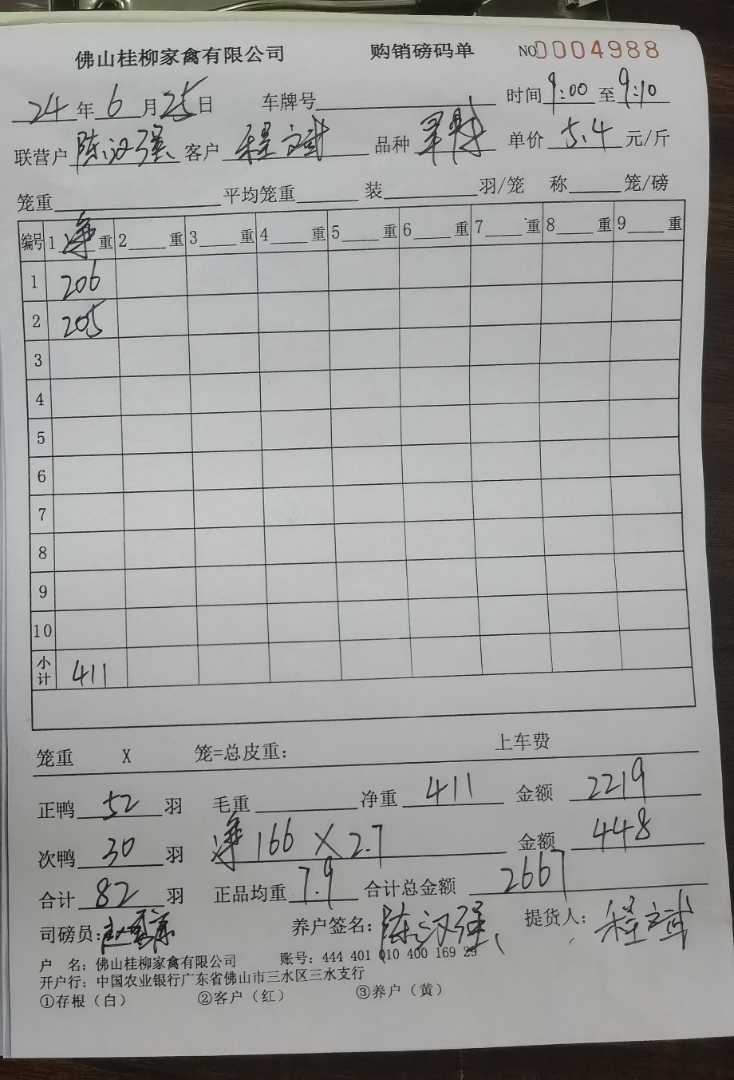 佛山桂柳家禽有限公司 购销磅码单 NO0004988
24年6月25日 车牌号 时间9:00至9:10
联营户 陈汉强 客户 程文斌 品种 单价 5.4 元/斤
笼重 平均笼重 装 羽/笼 称 笼/磅
编号 1净重 2 重 3 重 4 重 5 重 6 重 7 重 8 重 9 重
1 206
2 205
3
4
5
6
7
8
9
10
小计 411
笼重 X 笼=总皮重: 上车费
正鸭 52 羽 毛重 净重 411 金额 2219
次鸭 30 羽 净 166 X 2.7 金额 448
合计 82 羽 正品均重 7.9 合计总金额 2667
司磅员: 养户签名: 陈汉强 提货人: 程文斌
户 名: 佛山桂柳家禽有限公司 账号: 444 401 010 400 169 29
开户行: 中国农业银行广东省佛山市三水区三水支行
①存根（白） ②客户（红） ③养户（黄）